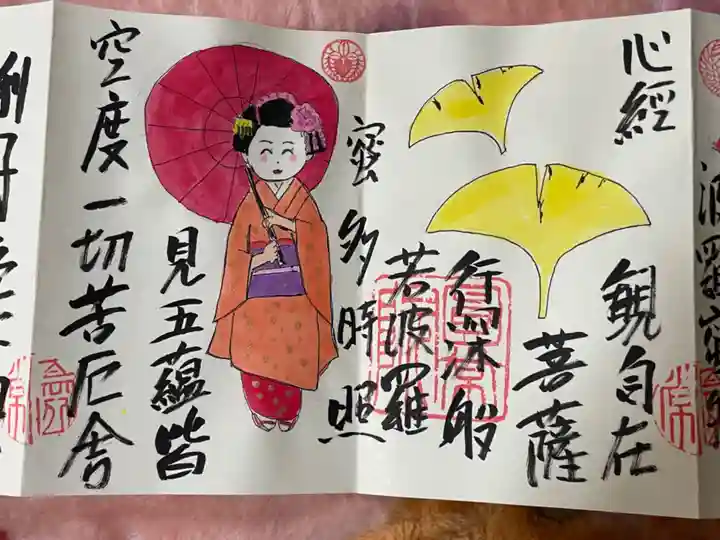 心經
觀自在
菩薩
行深般
若波羅
蜜多時照
見五蘊皆
空度一切苦厄舍